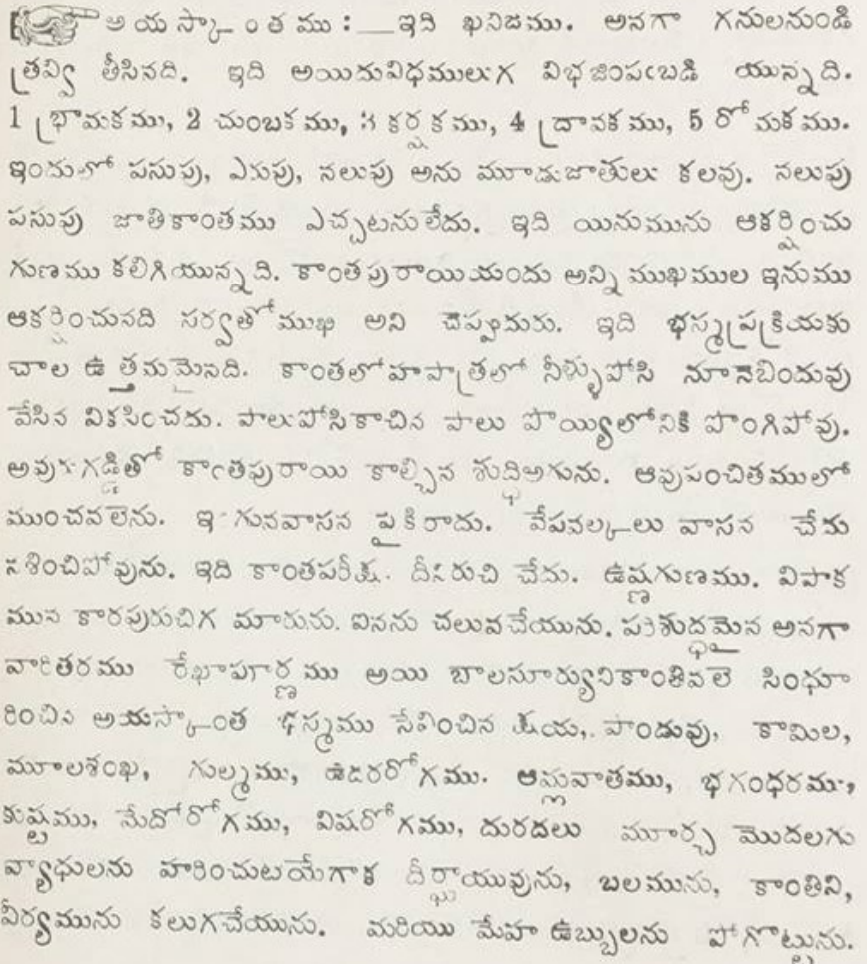 అయస్కాంతము :— ఇది ఖనిజము. అనగా గనులనుండి
త్రవ్వి తీసినది. ఇది అయిదువిధములుగ విభజింపఁబడి యున్నది.
1 భ్రామకము, 2 చుంబకము, 3 కర్షకము, 4 ద్రావకము, 5 రోమకము.
ఇందులో పసుపు, ఎరుపు, నలుపు అను మూడుజాతులు కలవు. నలుపు
పసుపు జాతికాంతము ఎచ్చటనులేదు. ఇది యినుమును ఆకర్షించు
గుణము కలిగియున్నది. కాంతపురాయియందు అన్ని ముఖముల ఇనుము
ఆకర్షించునది సర్వతోముఖి అని చెప్పుదురు. ఇది భస్మప్రక్రియకు
చాల ఉత్తమమైనది. కాంతలోహపాత్రలో నీళ్ళుపోసి నూనెబిందువు
వేసిన వికసించదు. పాలుపోసికాచిన పాలు పొయ్యిలోనికి పొంగిపోవు.
అవురుగడ్డితో కాంతపురాయి కాల్చిన శుద్ధిఅగును. ఆవుపంచితములో
ముంచవలెను. ఇంగువవాసన పైకిరాదు. వేపవల్కలు వాసన చేదు
నశించిపోవును. ఇది కాంతపరీక్ష. దీనిరుచి చేదు. ఉష్ణగుణము. విపాక
మున కారపురుచిగ మారును. ఐనను చలువచేయును. పరిశుద్ధమైన అనగా
వారితరము రేఖాపూర్ణము అయి బాలసూర్యునికాంతివలె సింధూ
రించిన అయస్కాంత భస్మము సేవించిన క్షయ, పాండువు, కామిల,
మూలశంఖ, గుల్మము, ఉదరరోగము. ఆమ్లవాతము, భగంధరము,
కుష్టము, మేదోరోగము, విషరోగము, దురదలు మూర్ఛ మొదలగు
వ్యాధులను హరించుటయేగాక దీర్ఘాయువును, బలమును, కాంతిని,
వీర్యమును కలుగచేయును. మరియు మేహ ఉబ్బులను పోగొట్టును.